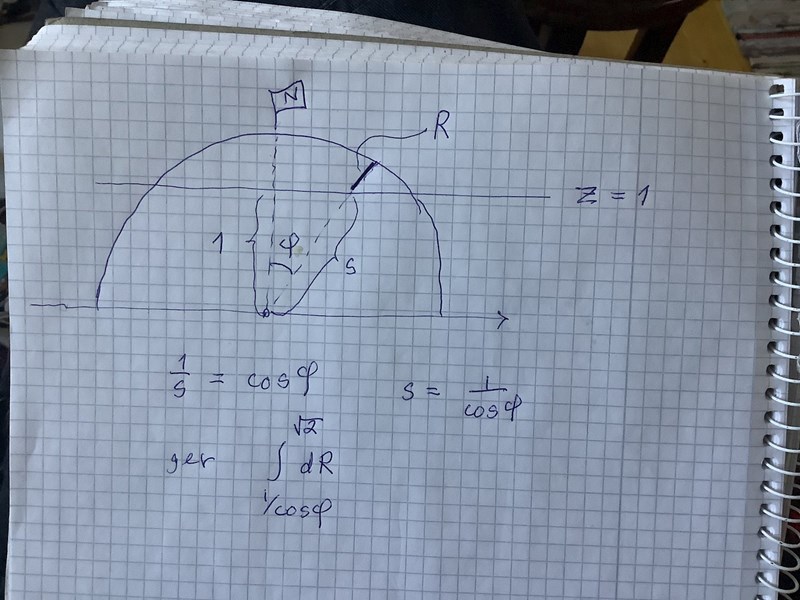 Z
R
Z = 1
1
φ
s
1/s = cos φ
s = 1/cos φ
ger ∫_{1/cosφ}^{√2} dR